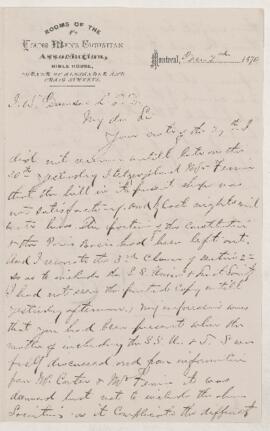 ROOMS OF THE
Young Men's Christian
Association,
BIBLE HOUSE,
CORNER OF ALEXANDER AND
CRAIG STREETS.
Montreal, 2nd 1870
J. W. Esq
My dear Sir
Your note of the 29th I
did not receive until late on the
30th yesterday I telegraphed Mr Ferrier
that the bill in its present shape was
not satisfactory, and last night
the portion of the Constitution
& the have had been left out
And I rewrote the 3rd Clause of section 2
so as to include the S.S. Union &
I had not seen the printed Copy until
yesterday afternoon. My impression was
that you had been present when the
matter of including the S.S. Un. & T. S was
fully discussed and from information
from Mr. Carter & Mr Ferrier it was
deemed best not to include the
Societies as it complicates the different